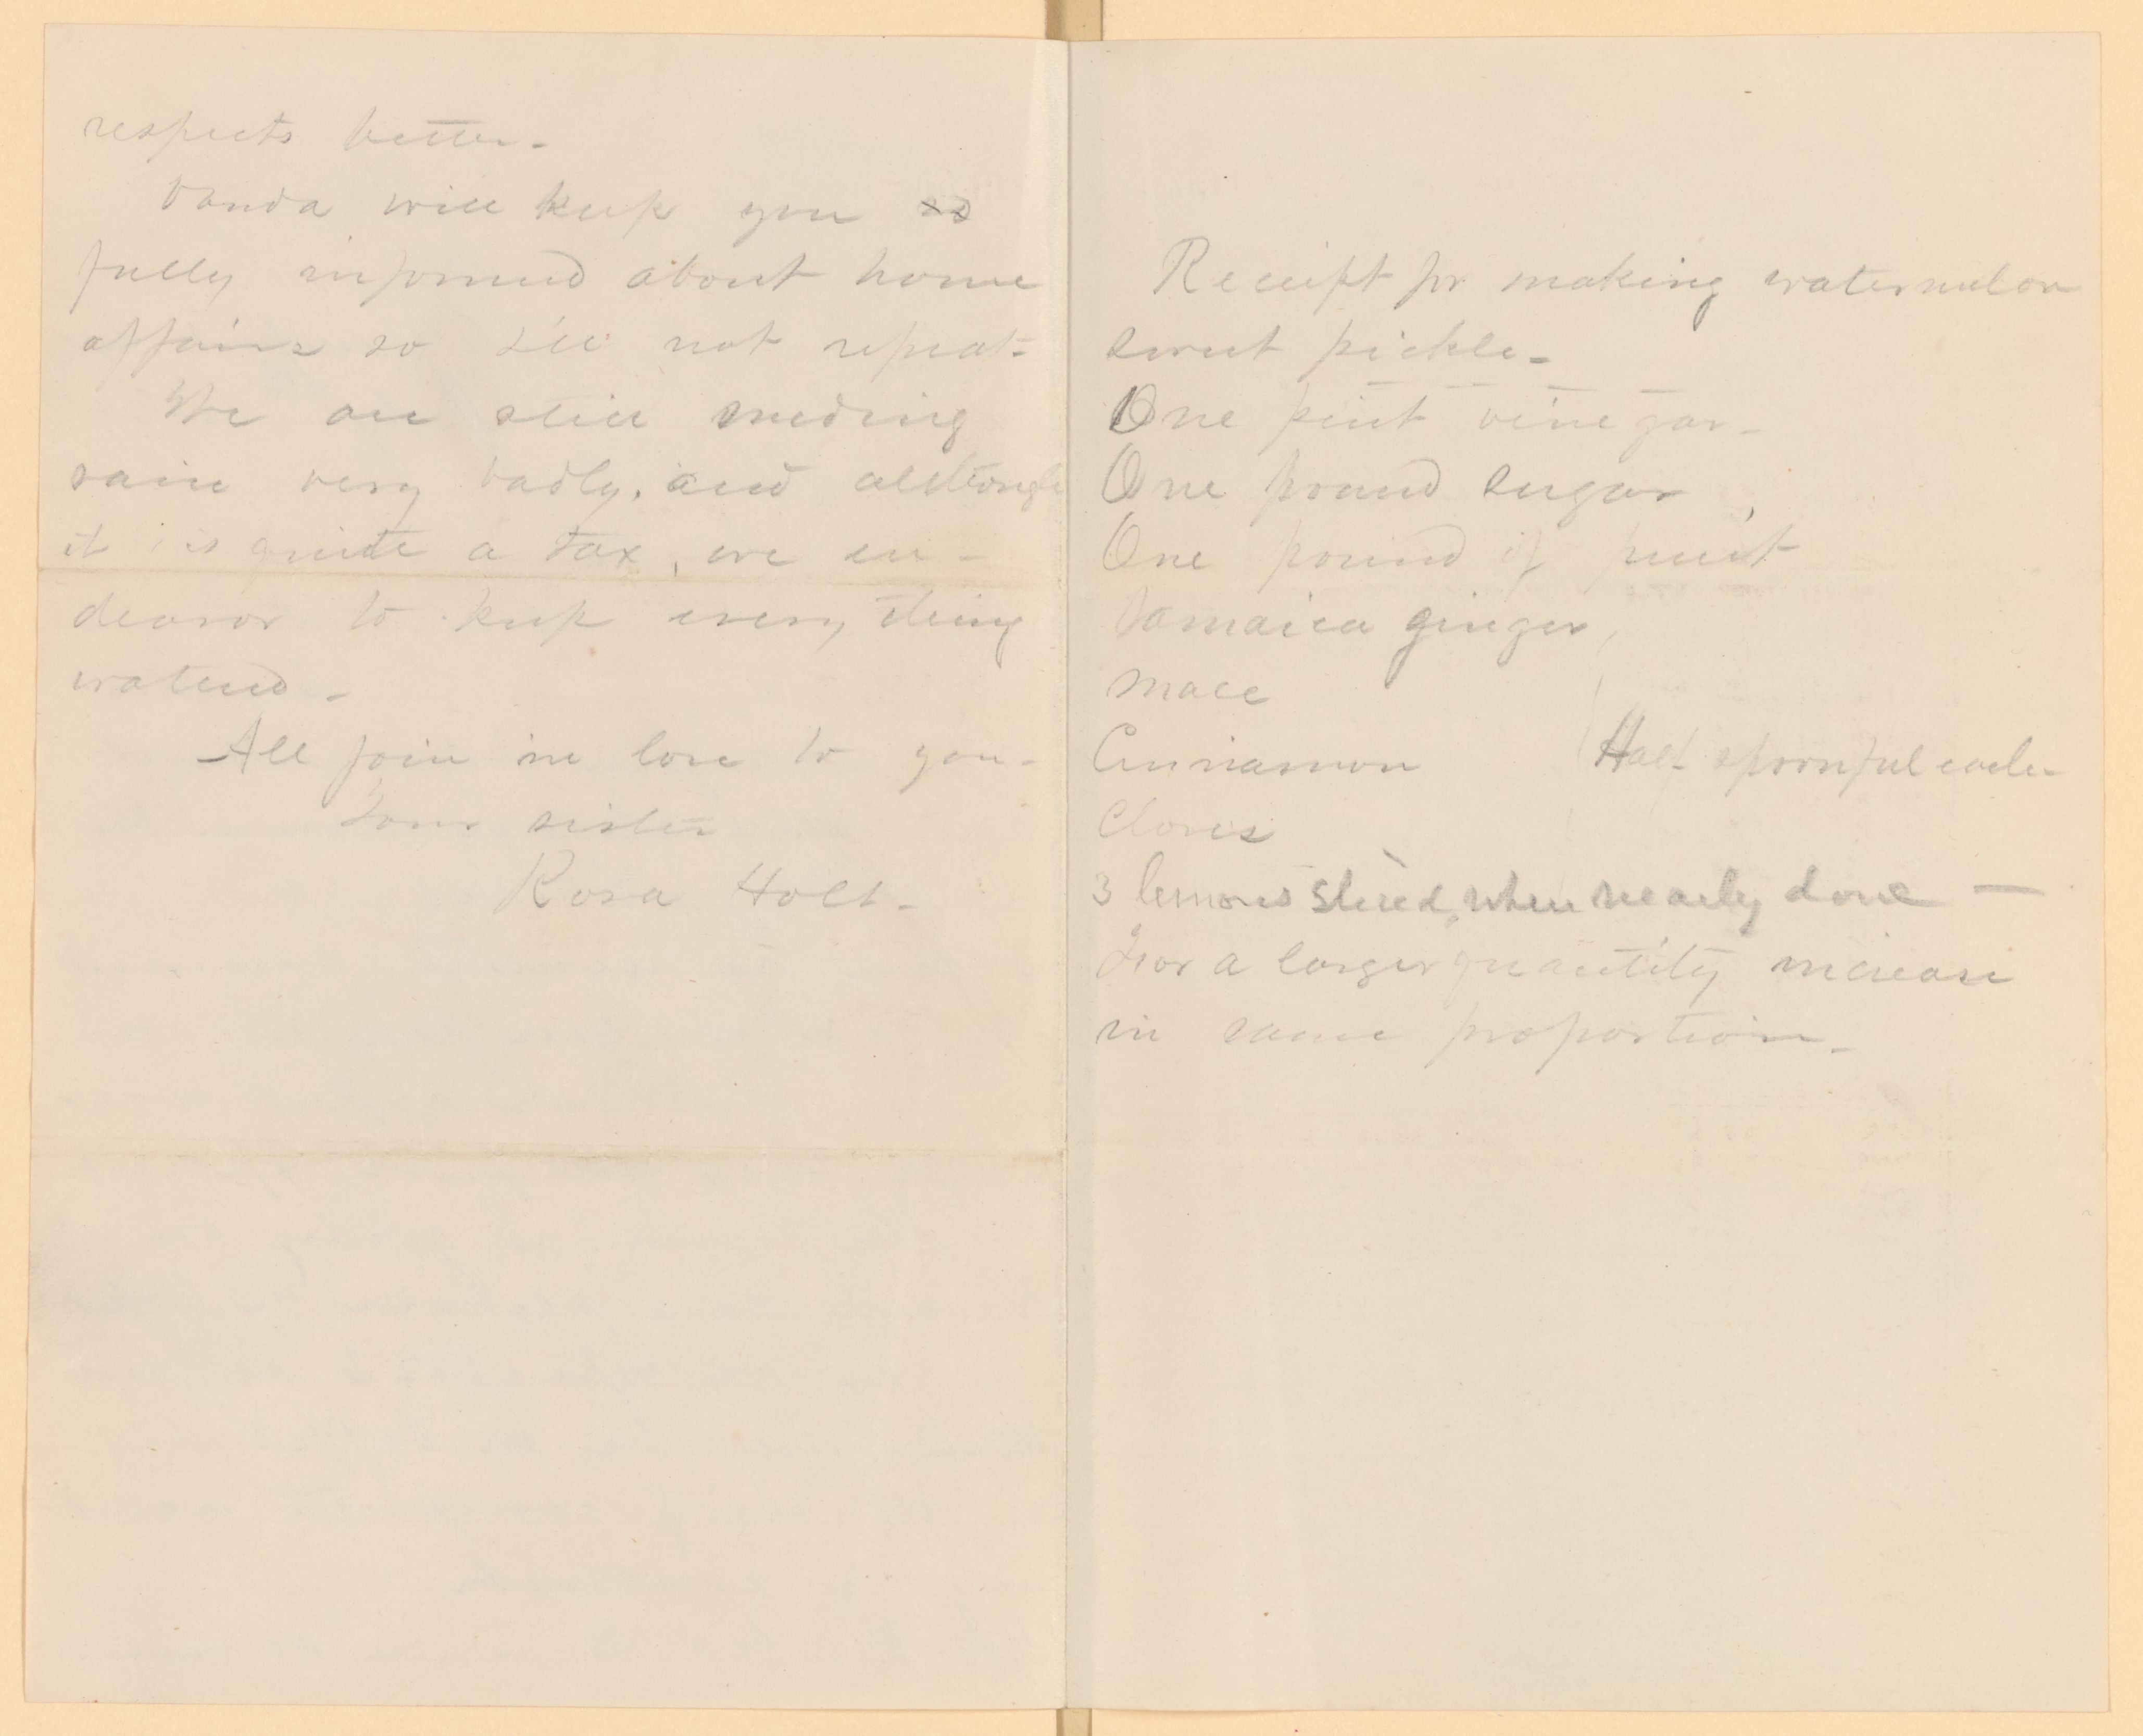 respects better-
Vanda will keep you so
fully informed about home
affairs so I'll not repeat-
We are still needing
rain very badly, and although
it is quite a tax, we en-
deavor to keep every thing
watered-
All join in love to you-
Your sister
Rosa Holt-
Receipt for making watermelon
sweet pickle-
One pint vinegar-
One pound sugar,
One pound of fruit
Jamaica ginger,
Mace
Cinnamon Half spoonful each-
Cloves
3 lemons sliced, when nearly done —
For a larger quantity increase
in same proportion-